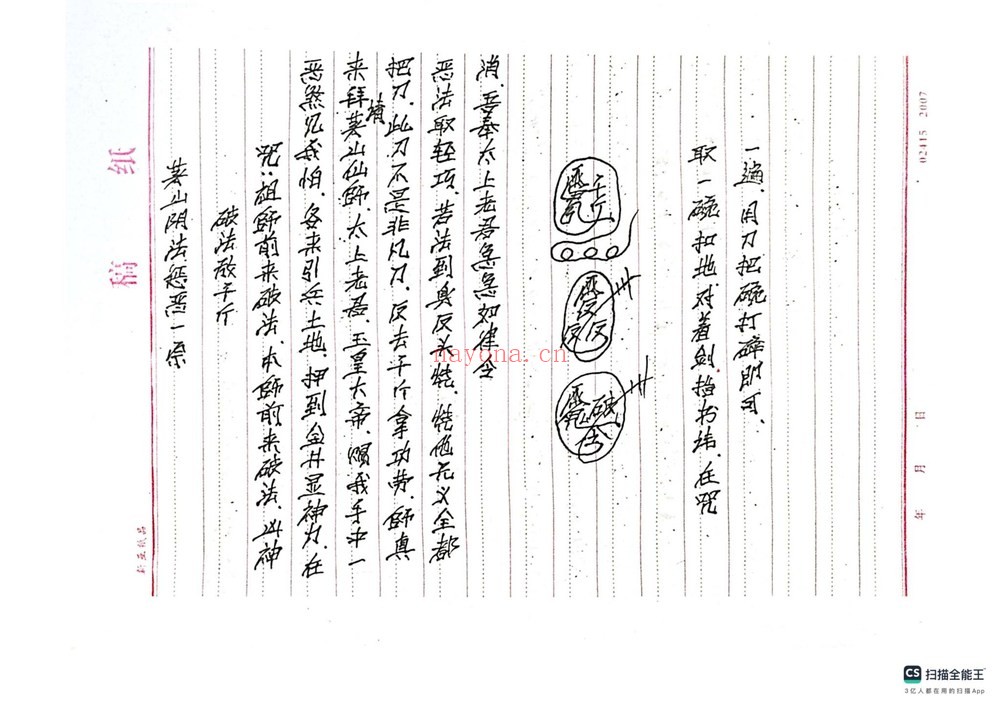 茅山阴法惩恶一宗
破法散千斤
咒:祖師前来破法.本師前来破法.凶神
恶煞见我怕.各来引兵土地.押到金井显神力.在
来拜茅山仙師.太上老君.玉皇大帝.赐我手中一
把刀.此刀不是非凡刀.反去千斤拿功劳.師真
恶法取轻巧.若法到身反头烧.烧他无义全都
消.吾奉太上老君急急如律令
取一碗扣地对着剑指书讳.在咒
一遍.用刀把碗打碎即可.
稿纸
02415 2007
年 月 日
nayona.cn
CS 扫描全能王
3亿人都在用的扫描App